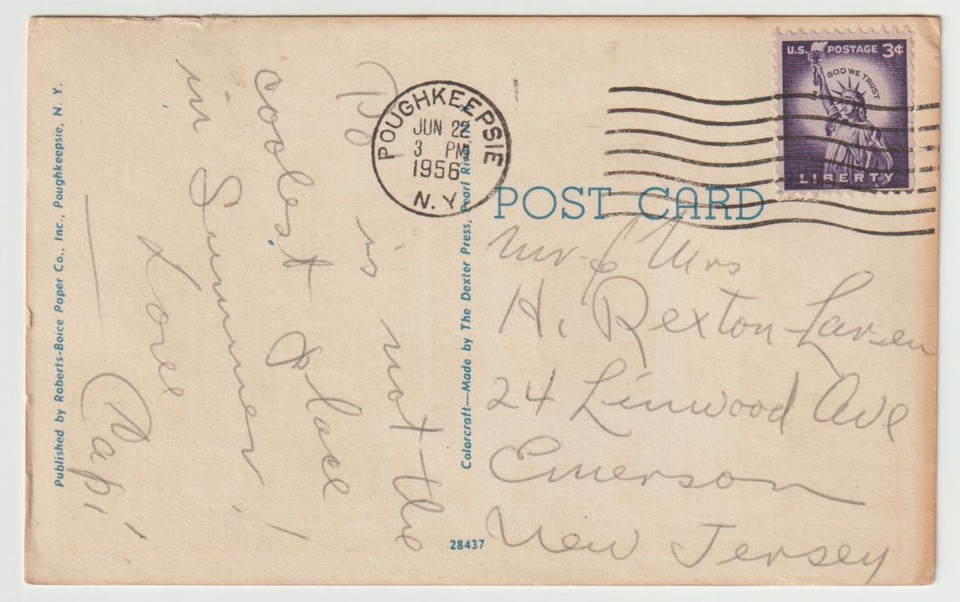 Po is not the
coolest place
in Summer!
Love
"Papi"
Published by Roberts-Boice Paper Co., Inc., Poughkeepsie, N. Y.
Colorcraft—Made by The Dexter Press, Pearl River, N. Y.
28437
POUGHKEEPSIE
JUN 22
3 PM
1956
N.Y.
U.S. POSTAGE 3¢
GOD WE TRUST
LIBERTY
POST CARD
Mr & Mrs
H. Rexton Larsen
24 Linwood Ave
Emerson
New Jersey